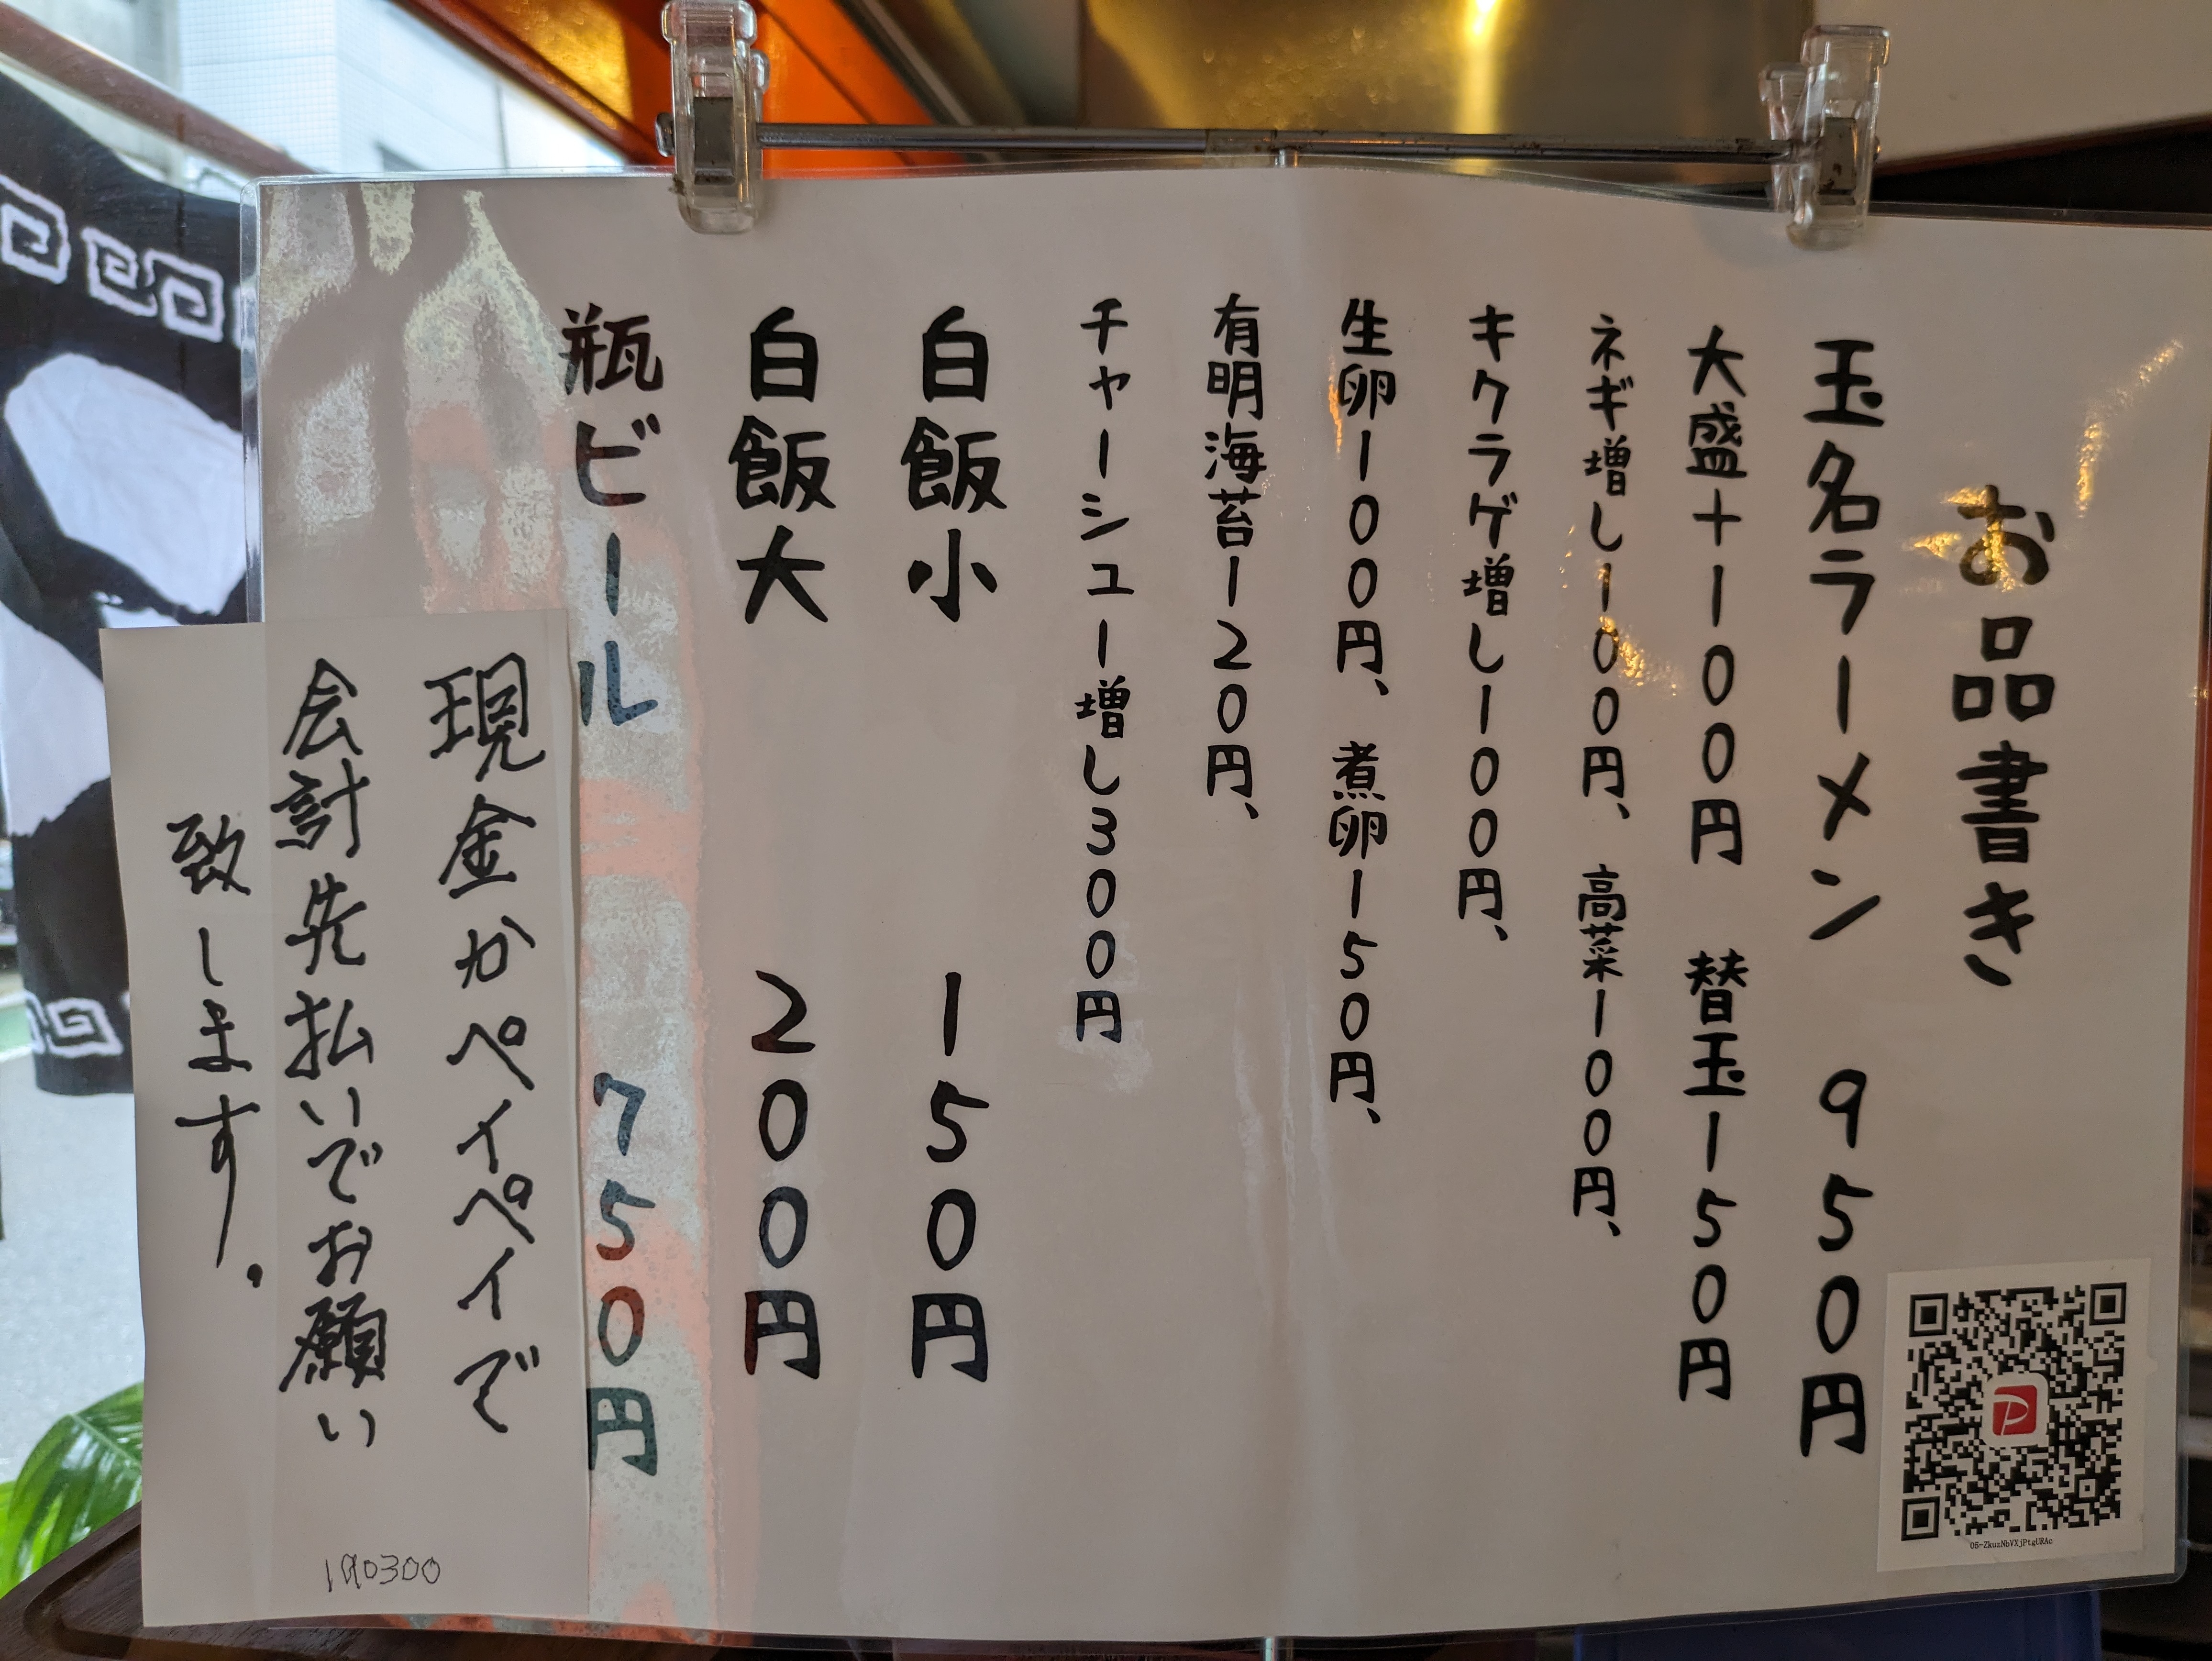 お品書き
玉名ラーメン 950円
大盛+100円 替玉150円
ネギ増し100円、高菜100円、
キクラゲ増し100円、
生卵100円、煮卵150円、
有明海苔120円、
チャーシュー増し300円
白飯小 150円
白飯大 200円
瓶ビール 750円
現金かペイペイで
会計先払いでお願い
致します。
190300
05-ZkuzNbVXjPtgURAc